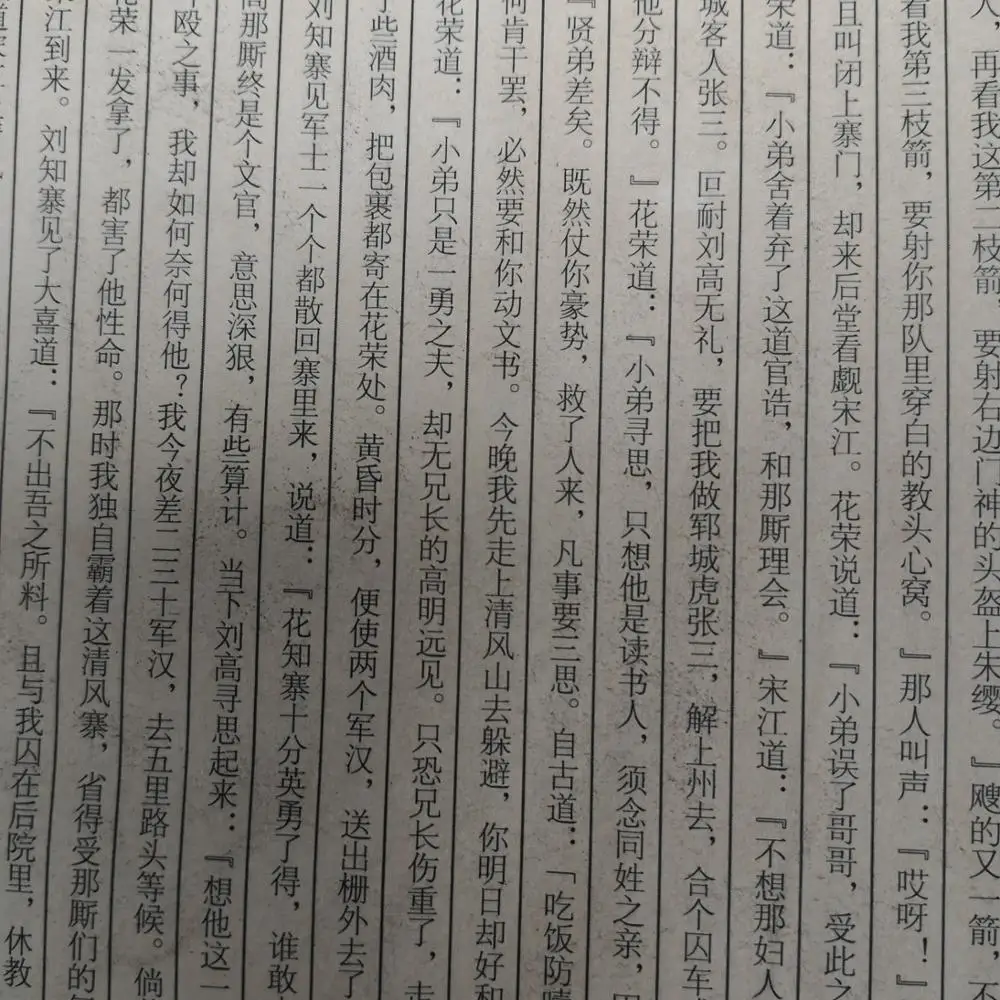 再看我这第二枝箭，要射右边门神的头盔上朱缨。』飕的又一箭，不
看我第三枝箭，要射你那队里穿白的教头心窝。』那人叫声：『哎呀！』
且叫闭上寨门，却来后堂看觑宋江。花荣说道：『小弟误了哥哥，受此之
荣道：『小弟舍着弃了这道官诰，和那厮理会。』宋江道：『不想那妇人
城客人张三。叵耐刘高无礼，要把我做郓城虎张三，解上州去，合个囚车
他分辩不得。』花荣道：『小弟寻思，只想他是读书人，须念同姓之亲，
『贤弟差矣。既然仗你豪势，救了人来，凡事要三思。自古道：「吃饭防
何肯干罢，必然要和你动文书。今晚我先走上清风山去躲避，你明日却好和
花荣道：『小弟只是一勇之夫，却无兄长的高明远见。只恐兄长伤重了，走
些酒肉，把包裹都寄在花荣处。黄昏时分，便使两个军汉，送出栅外去了
刘知寨见军士一个个都散回寨里来，说道：『花知寨十分英勇了得，谁敢
高那厮终是个文官，意思深狠，有些算计。当下刘高寻思起来：『想他这一
殴之事，我却如何奈何得他？我今夜差二三十军汉，去五里路头等候。倘
花荣一发拿了，都害了他性命。那时我独自霸着这清风寨，省得受那厮们的
宋江到来。刘知寨见了大喜道：『不出吾之所料。且与我囚在后院里，休教